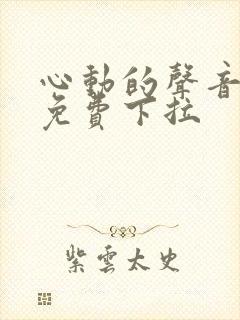 心動的聲音
免費下拉
紫雲太史